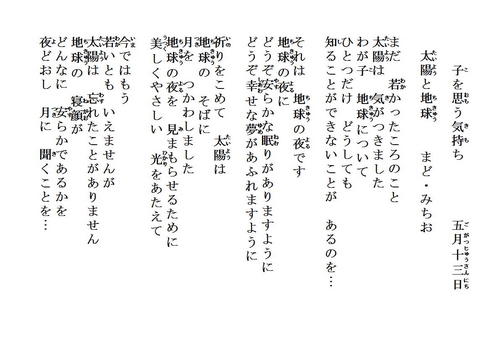 子を思う気持ち 五月十三日
太陽と地球 まど・みちお
まだ 若かったころのこと
太陽は 気がつきました
わが子 地球について
ひとつだけ どうしても
知ることができないことが あるのを…
それは 地球の夜です
地球の夜に
どうぞ安らかな眠りがありますように
どうぞ幸せな夢があふれますように
祈りをこめて 太陽は
地球の そばに
月を つかわしました
地球の夜を 見まもらせるために
美しくやさしい 光をあたえて
今ではもう
若いとも いえませんが
太陽は 忘れたことがありません
地球の 寝顔が
どんなに 安らかであるかを
夜どおし 月に 聞くことを…